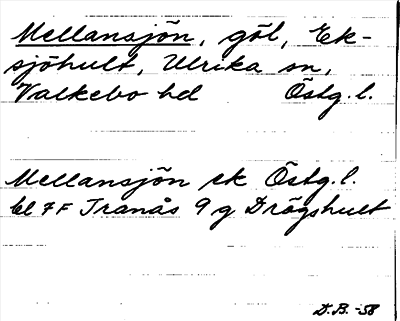 Mellansjön, göl, Ek-
sjöhult, Ulrika sn,
Valkebo hd Östg. l.
Mellansjön ek Östg. l.
bl 7F Tranås 9 g Drögshult
D.B. -58